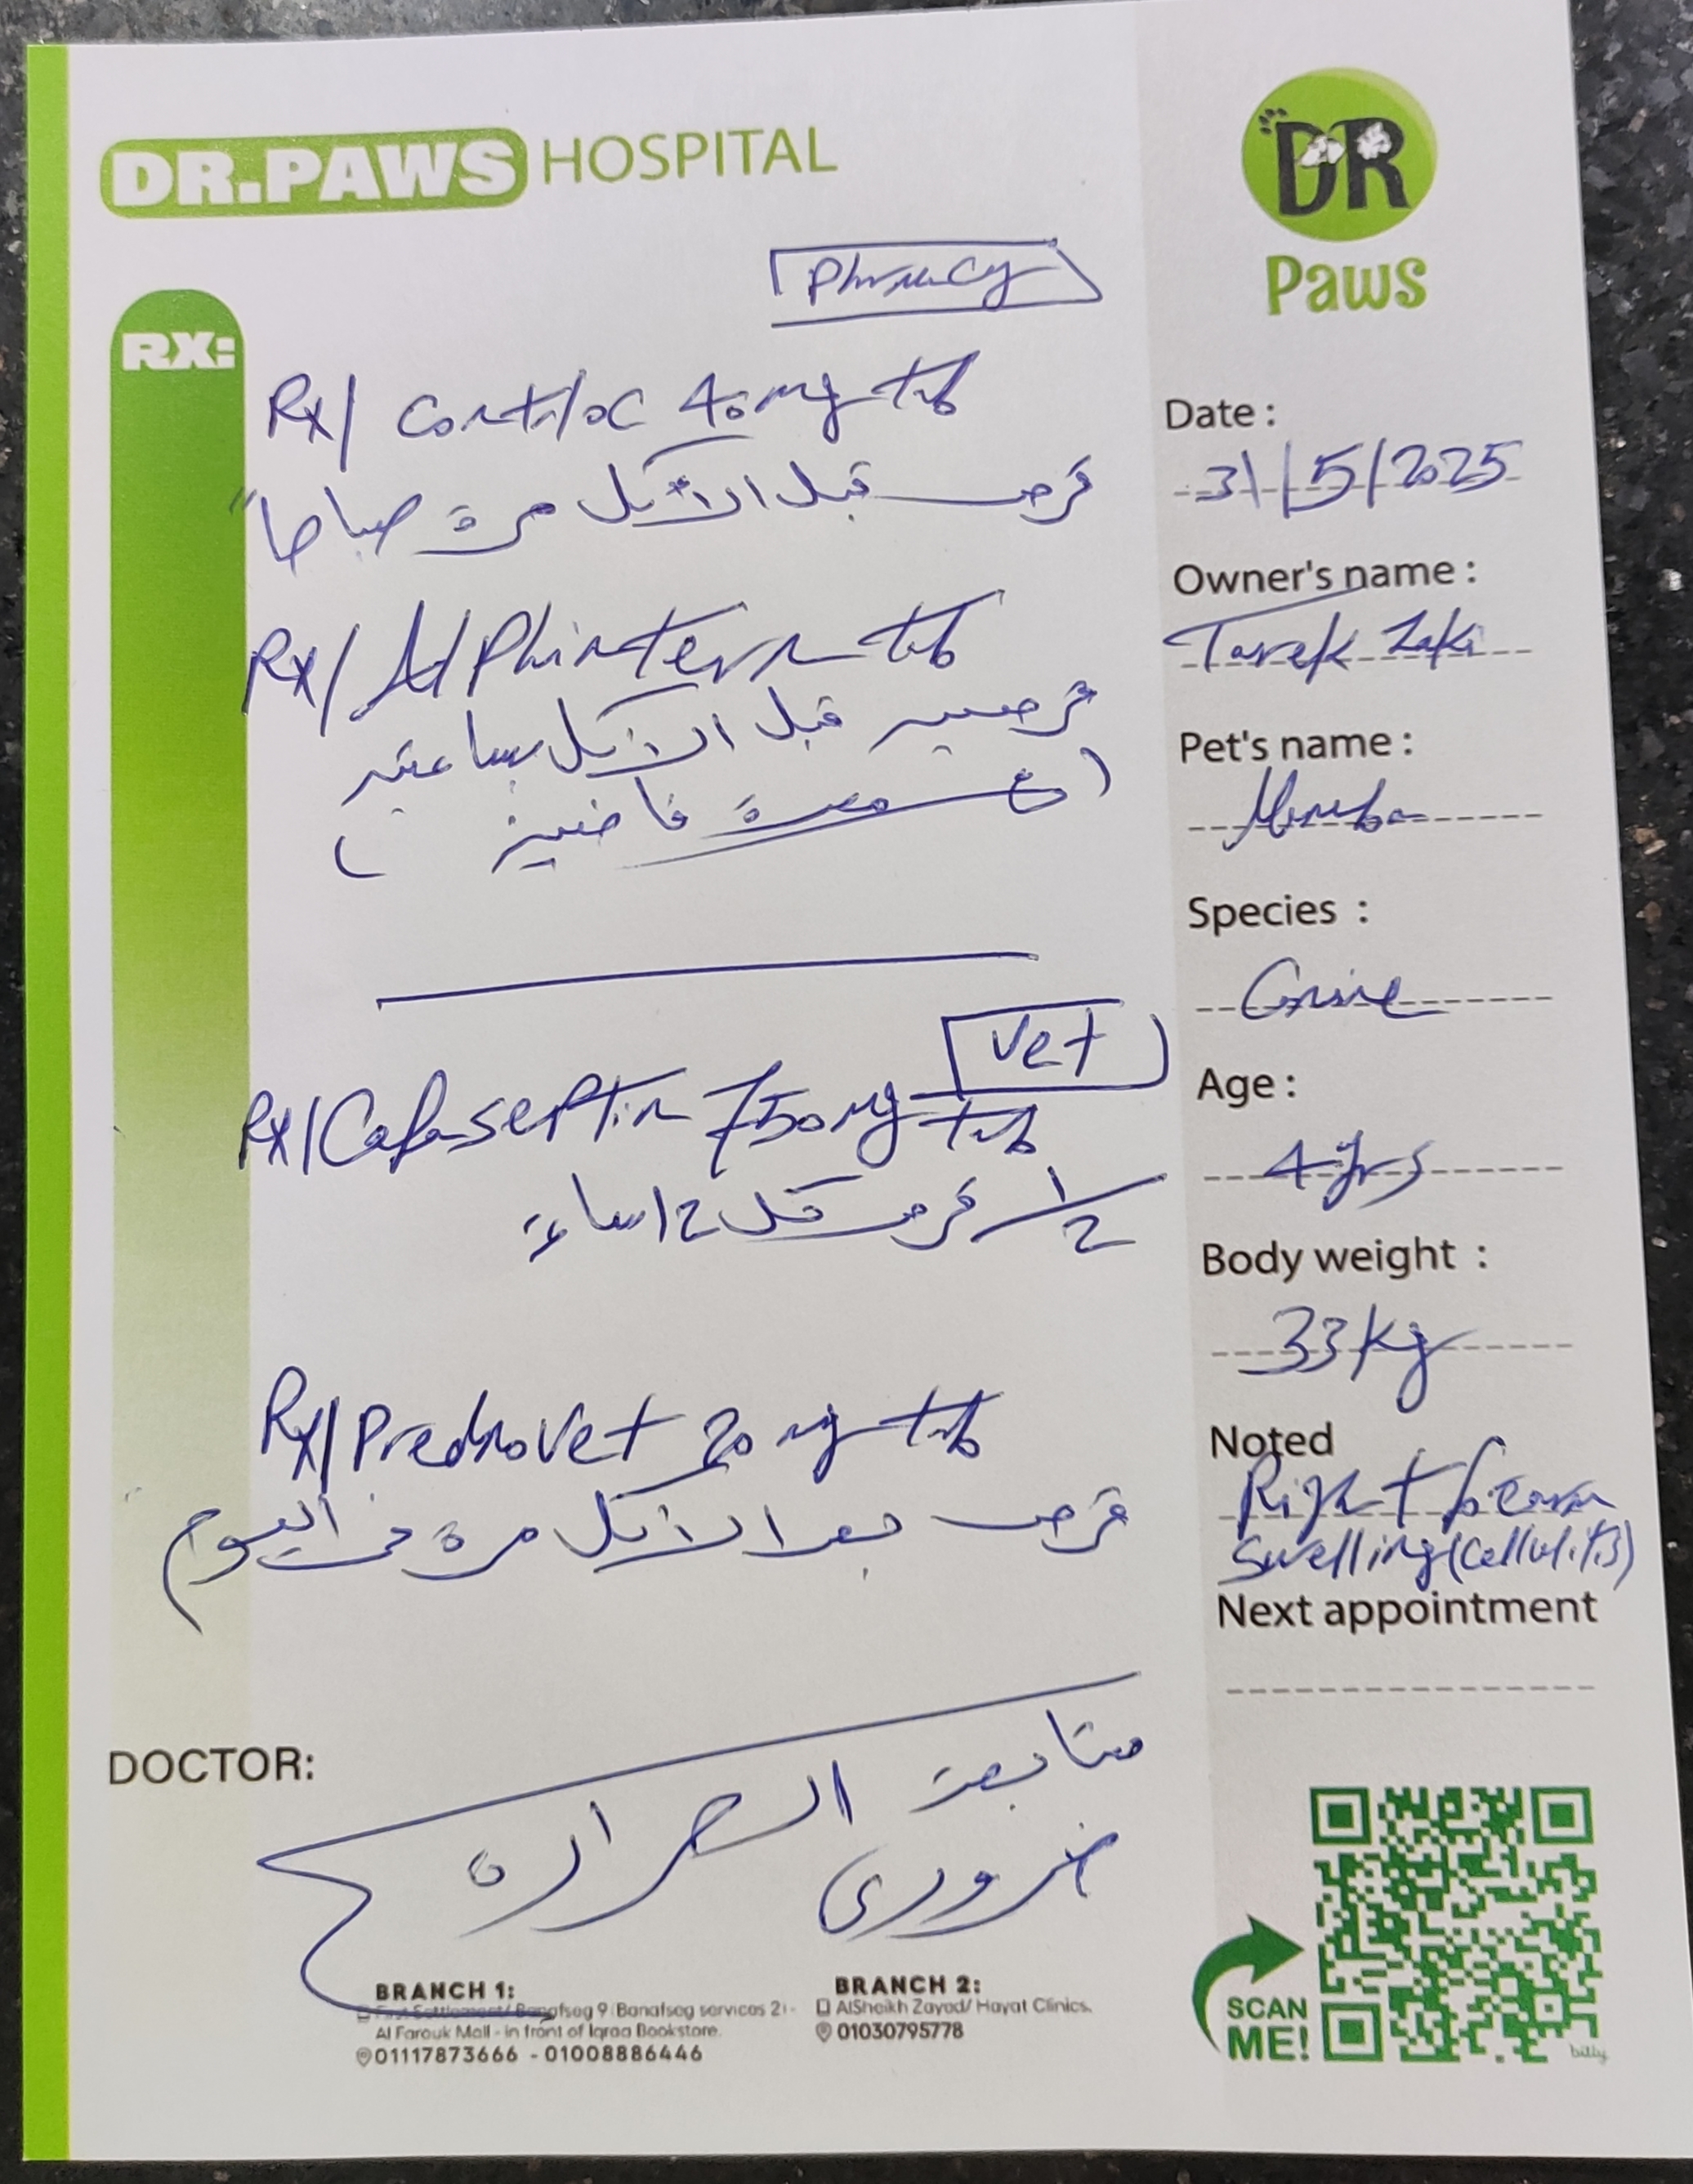 DR.PAWS HOSPITAL
DR
Paws
Phrmacy
RX:
Rx/ Controloc 40mg tab
قرص قبل الأكل مرة صباحاً
Rx/ Alphintern tab
قرصين قبل الأكل بساعتين
(على معدة فاضية)
Vet
Rx/ Cefaseptin 750mg tab
1/2 قرص كل 12 ساعة
Rx/ Prednovet 20mg tab
قرص بعد الأكل مرة في اليوم
متابعة الحرارة
ضروري
DOCTOR:
Date :
31/5/2025
Owner's name :
Tarek Zaki
Pet's name :
Species :
Canine
Age :
4 yrs
Body weight :
33 kg
Noted
Right
Swelling (cellulitis)
Next appointment
SCAN
ME!
billy
BRANCH 1:
First Settlement/ Banafseg 9 (Banafseg services 2) -
Al Farouk Mall - in front of Iqraa Bookstore.
01117873666 - 01008886446
BRANCH 2:
AlSheikh Zayed/ Hayat Clinics.
01030795778